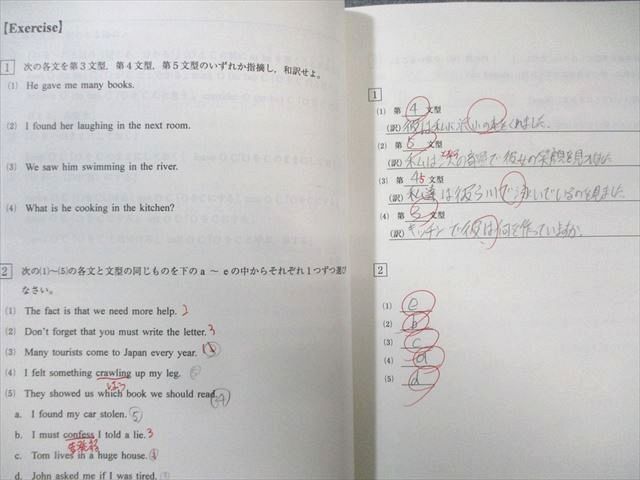 【Exercise】
1 次の各文を第3文型，第4文型，第5文型のいずれか指摘し，和訳せよ。
(1) He gave me many books.
(2) I found her laughing in the next room.
(3) We saw him swimming in the river.
(4) What is he cooking in the kitchen?
2 次の(1)～(5)の各文と文型の同じものを下の a ～ e の中からそれぞれ1つずつ選び
なさい。
(1) The fact is that we need more help. 2
(2) Don't forget that you must write the letter. 3
(3) Many tourists come to Japan every year. 1
(4) I felt something crawling up my leg. 5
はう
(5) They showed us which book we should read. 4
a. I found my car stolen. 5
b. I must confess I told a lie. 3
c. Tom lives in a huge house. 1
d. John asked me if I was tired.
1
(1) 第 4 文型
(訳) 彼は私に沢山の本をくれました。
(2) 第 5 文型
(訳) 私は で彼女の笑顔を見
(3) 第 4 5 文型
(訳) 私達は彼が川で泳いでいるのを見ました。
(4) 第 3 文型
(訳) キッチンで彼は何を作っていますか。
2
(1) e
(2) b
(3) c
(4) a
(5) d